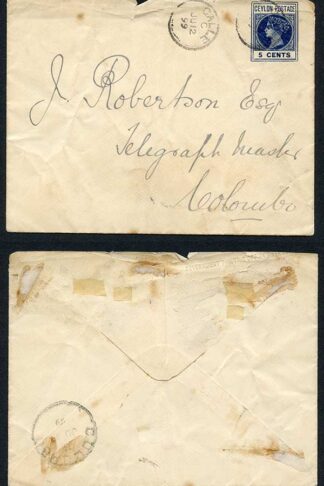 GALLE
C
JU 12
99
CEYLON POSTAGE
5 CENTS
J. Robertson Esq
Telegraph Master
Colombo